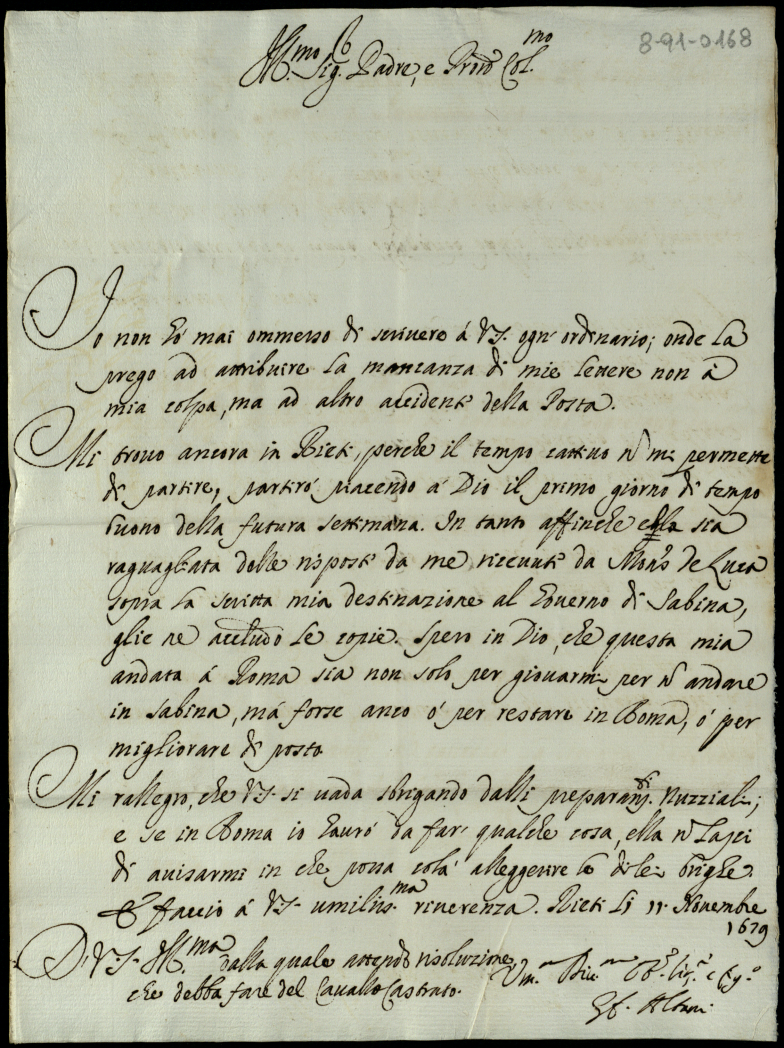 8-91-0168
Ill.mo Sig. Padre, e Pron Col.mo
Io non hò mai ommesso di scrivere á VS. ogn' ordinario; onde la
prego ad attribuire la mancanza di mie lettere non á
mia colpa, ma ad altro accidente della Posta.
Mi trovo ancora in Rieti, perche il tempo cattivo ñ mi permette
di partire, partiró piacendo á Dio il primo giorno di tempo
buono della futura settimana. In tanto affinche ella sia
raguagliata delle risposte da me ricevute da Mons.r de Luca
sopra la scritta mia destinazione al Governo di Sabina,
glie ne accludo le copie. Spero in Dio, che questa mia
andata á Roma sia non solo per giovarmi per ñ andare
in Sabina, má forse anco ó per restare in Roma, ó per
migliorare di posto
Mi rallegro, che VS. si vada sbrigando dalli preparam.ti Nuzziali;
e se in Roma io havró da far' qualche cosa, ella ñ lasci
di avisarmi in che possa colá alleggerire le di lei brighe.
E faccio á VS. umiliss.ma riverenza. Rieti li 11 Novembre
1679
Di V.S. Ill.ma dalla quale attendo risoluzione
che debba fare del Cavallo Castrato.
Um.